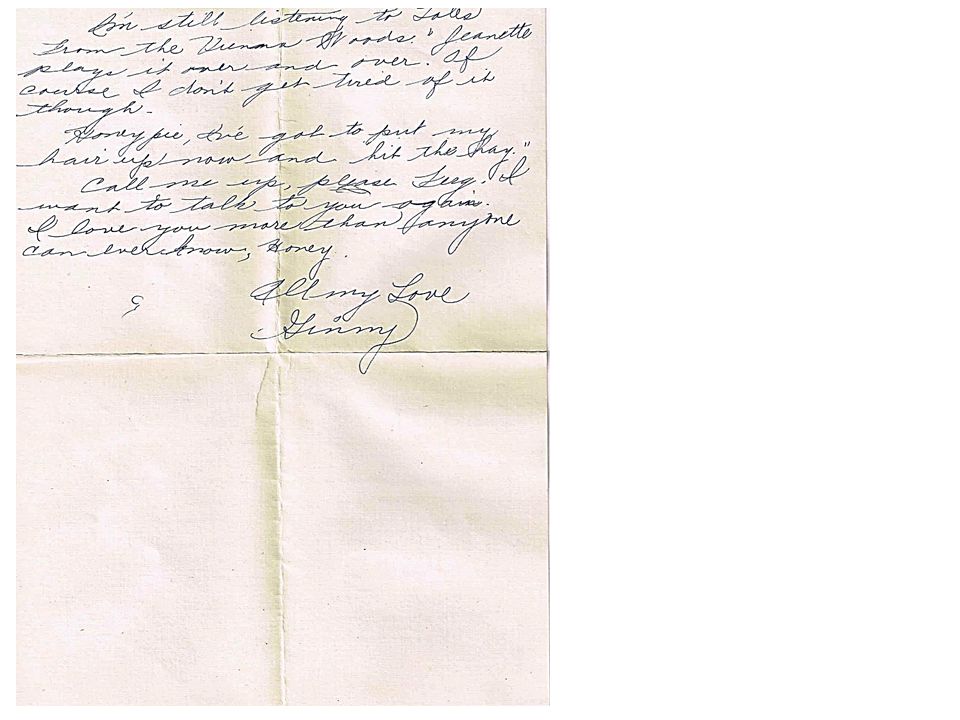 I'm still listening to "Tales
From the Vienna Woods." Jeanette
plays it over and over. Of
course I don't get tired of it
though.
Honey pie, I've got to put my
hair up now and "hit the hay."
Call me up, please . I
want to talk to you again.
I love you more than anyone
can ever know, Honey.
All my Love
Ginny